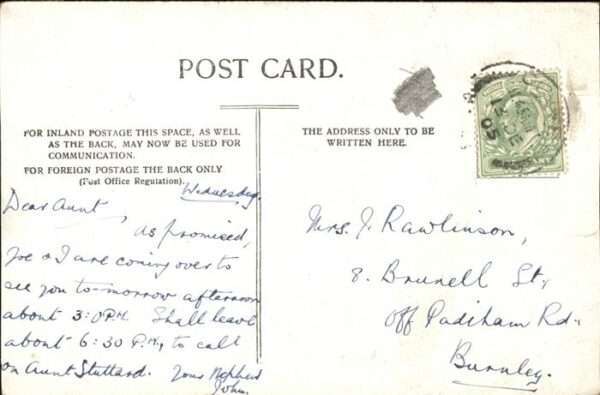 POST CARD.
FOR INLAND POSTAGE THIS SPACE, AS WELL
AS THE BACK, MAY NOW BE USED FOR
COMMUNICATION.
FOR FOREIGN POSTAGE THE BACK ONLY
(Post Office Regulation).
THE ADDRESS ONLY TO BE
WRITTEN HERE.
Wednesday.
Dear Aunt,
as promised,
Joe & I are coming over to
see you to-morrow afternoon
about 3:0 P.M. Shall leave
about 6:30 P.M. to call
on Aunt Stuttard. Your Nephew
John.
Mrs. J. Rawlinson,
8. Brunell St,
Off Padiham Rd.,
Burnley.
05